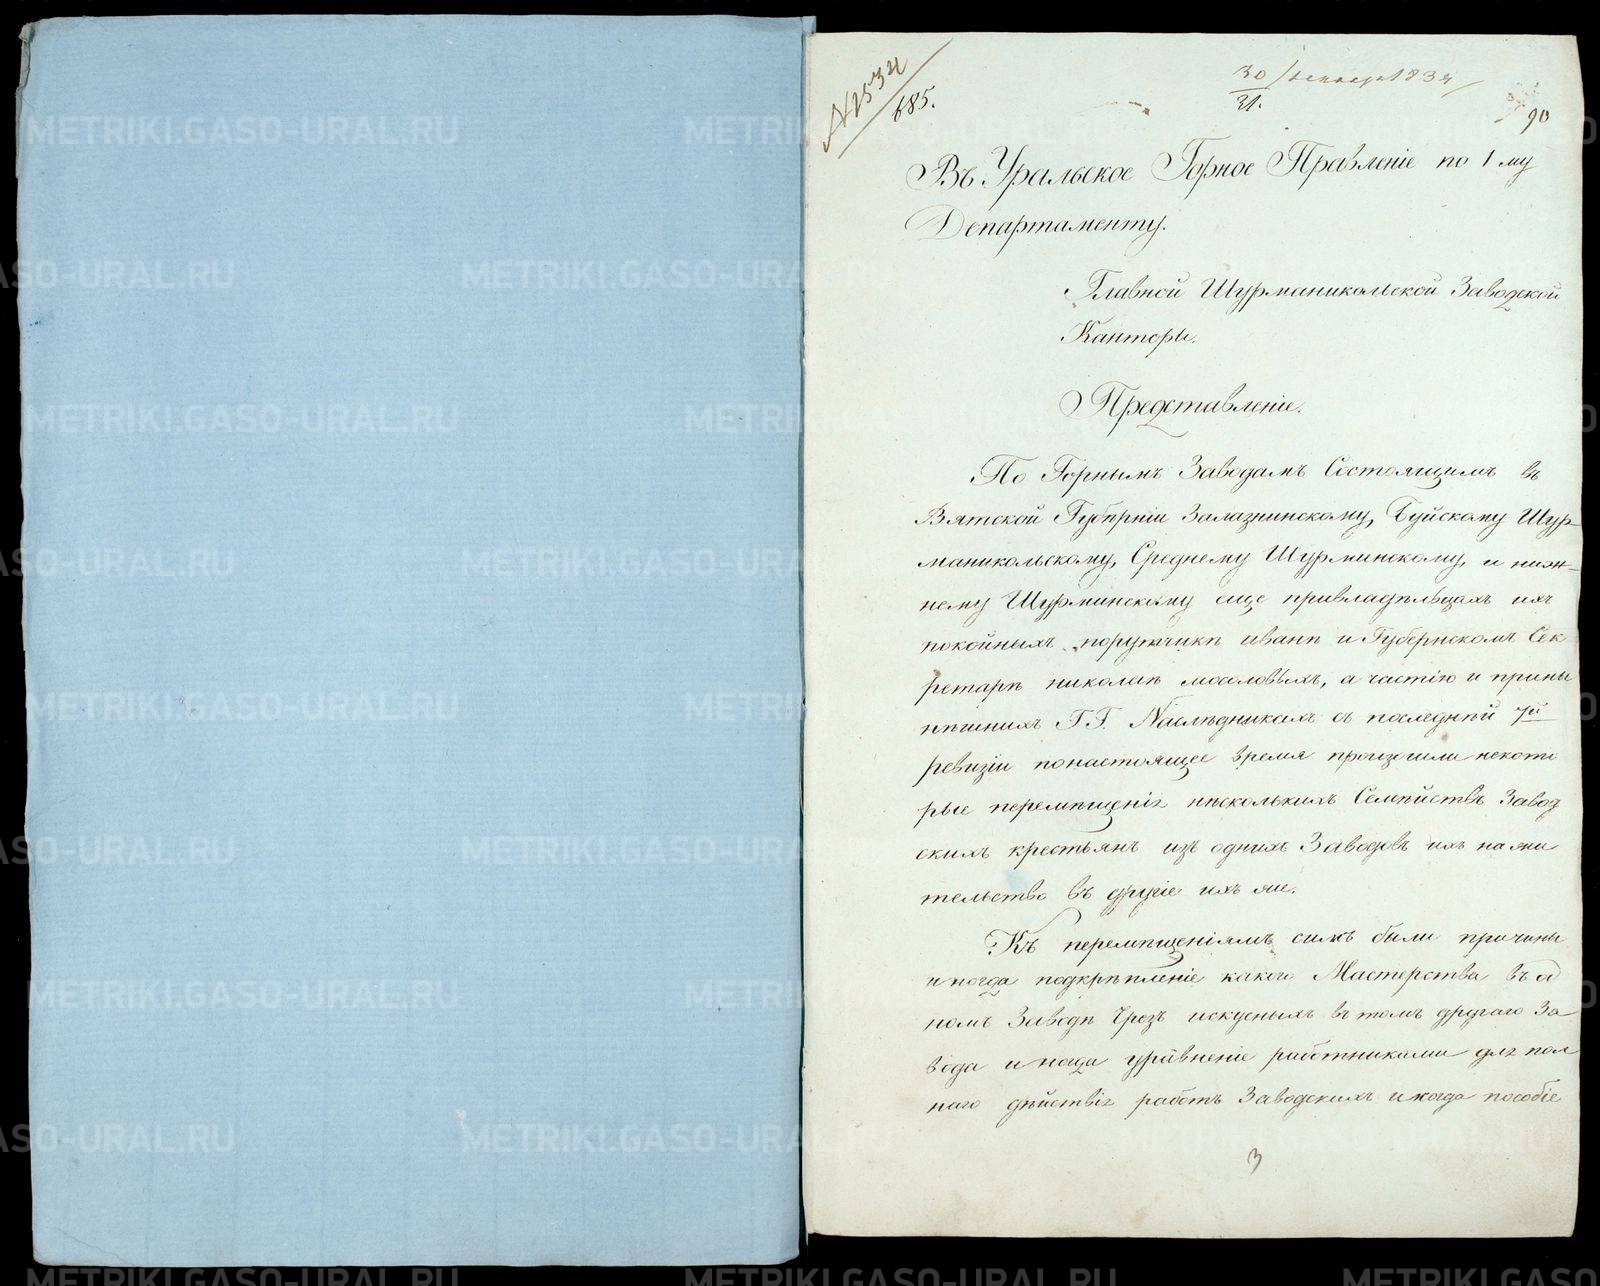 № 2534
685.
30 декабря 1834
31.
90
Въ Уральское Горное Правленіе по 1 му
Департаменту.
Главной Шурманикольской Заводской
Канторы.
Представленіе.
По Горнымъ Заводамъ Состоящимъ въ
Вятской Губерніи Залазнинскому, Буйскому Шур-
маникольскому, Среднему Шурминскому, и ниж-
нему Шурминскому еще привладѣльцахъ ихъ
покойныхъ порутчикѣ иванѣ и Губернскомъ Сек
ретарѣ николаѣ мосоловыхъ, а частію и прины
нѣшнихъ Г.Г. Наслѣдникахъ съ последнѣй 7й
ревизіи понастоящее время произошли некото
рые перемѣщенія нѣсколькихъ Семѣйствъ Завод
скихъ крестьянъ изъ однихъ Заводовъ ихъ нажи
тельство въ другіе ихъ же.
Къ перемѣщеніямъ симъ были причины
иногда подкрѣпленіе какого Мастерства въ од
номъ Заводѣ Чрезъ искусныхъ въ томъ другаго За
вода иногда уравненіе работниками для пол
наго дѣйствія работъ Заводскихъ иногда пособіе
3
METRIKI.GASO-URAL.RU